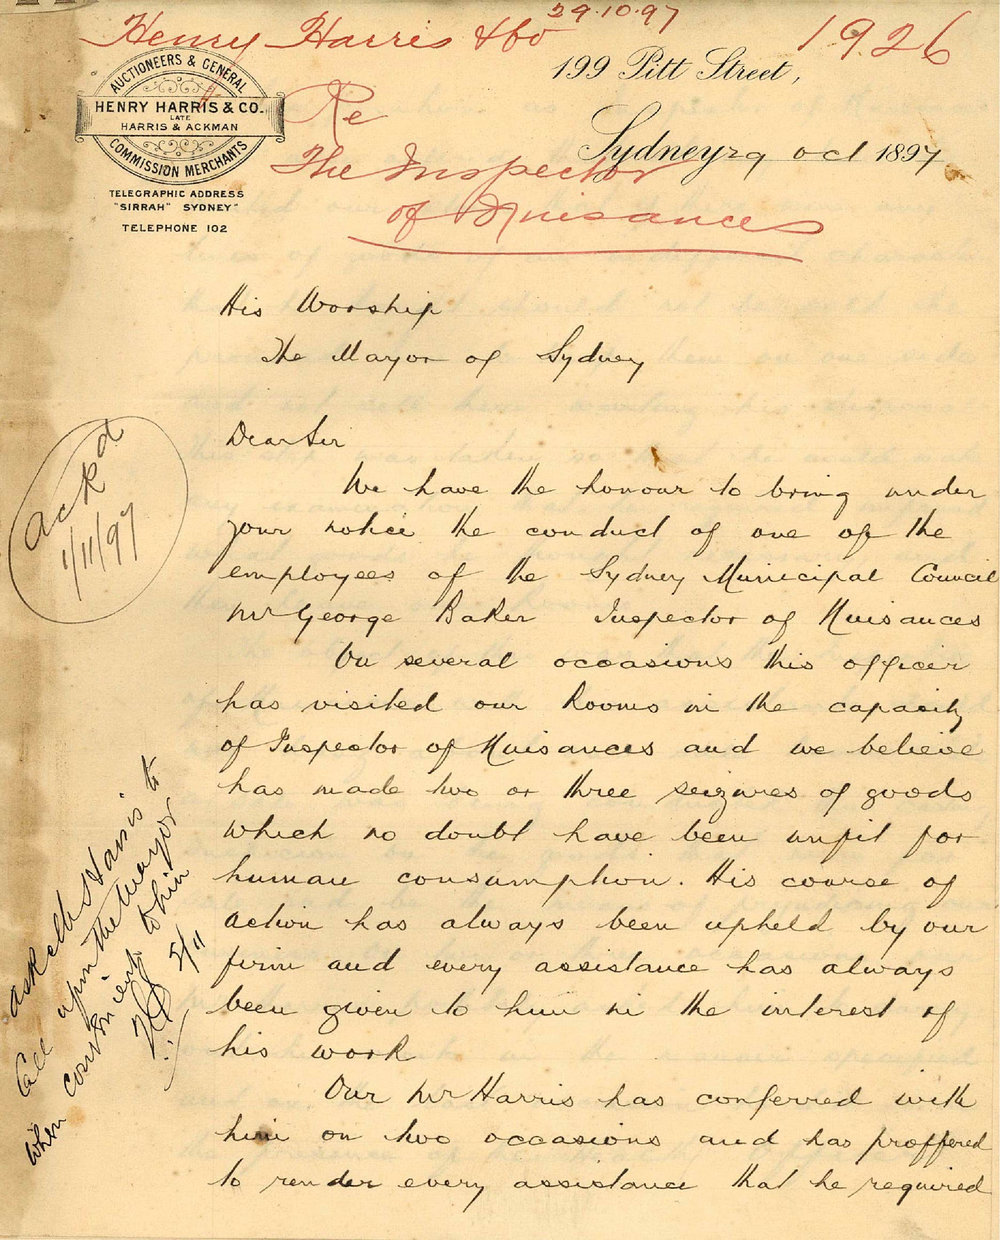 29.10.97
Henry Harris & Co
1926
199 Pitt Street,
Re
The Inspector
of Nuisances
AUCTIONEERS & GENERAL
HENRY HARRIS & CO.
LATE
HARRIS & ACKMAN
COMMISSION MERCHANTS
TELEGRAPHIC ADDRESS
"SIRRAH" SYDNEY"
TELEPHONE 102
Sydney 29 Oct 1897
His Worship
The Mayor of Sydney
Dear Sir
We have the honour to bring under
your notice the conduct of one of the
employees of the Sydney Municipal Council
Mr George Baker Inspector of Nuisances
On several occasions this officer
has visited our Rooms in the capacity
of Inspector of Nuisances and we believe
has made two or three seizures of goods
which no doubt have been unfit for
human consumption. His course of
action has always been upheld by our
firm and every assistance has always
been given to him in the interest of
his work
Our Mr Harris has conferred with
him on two occasions and has proffered
to render every assistance that he required
Ackd
1/11/97
Ask Mr Harris to
Call upon the Mayor
when convenient to him
2/11